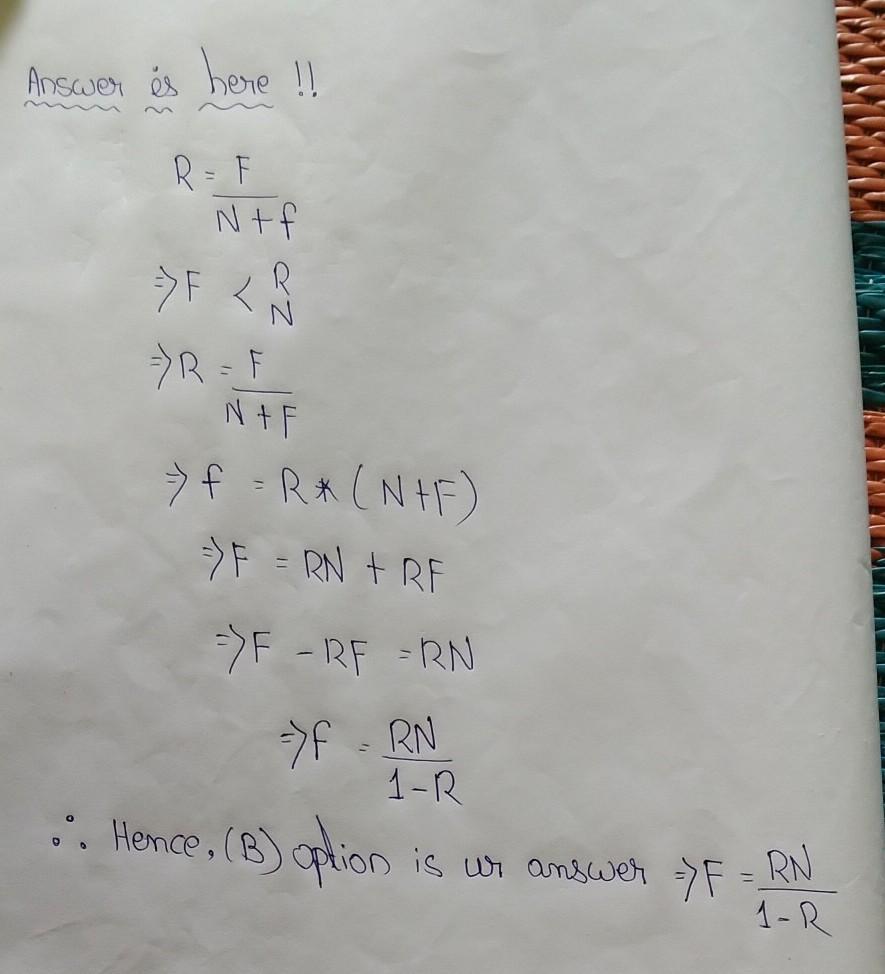 Answer is here !!
R = F
N + f
⇒ F < R
N
⇒ R = F
N + F
⇒ f = R * ( N + F )
⇒ F = RN + RF
⇒ F - RF = RN
⇒ f = RN
1 - R
∴ Hence, (B) option is ur answer ⇒ F = RN
1 - R